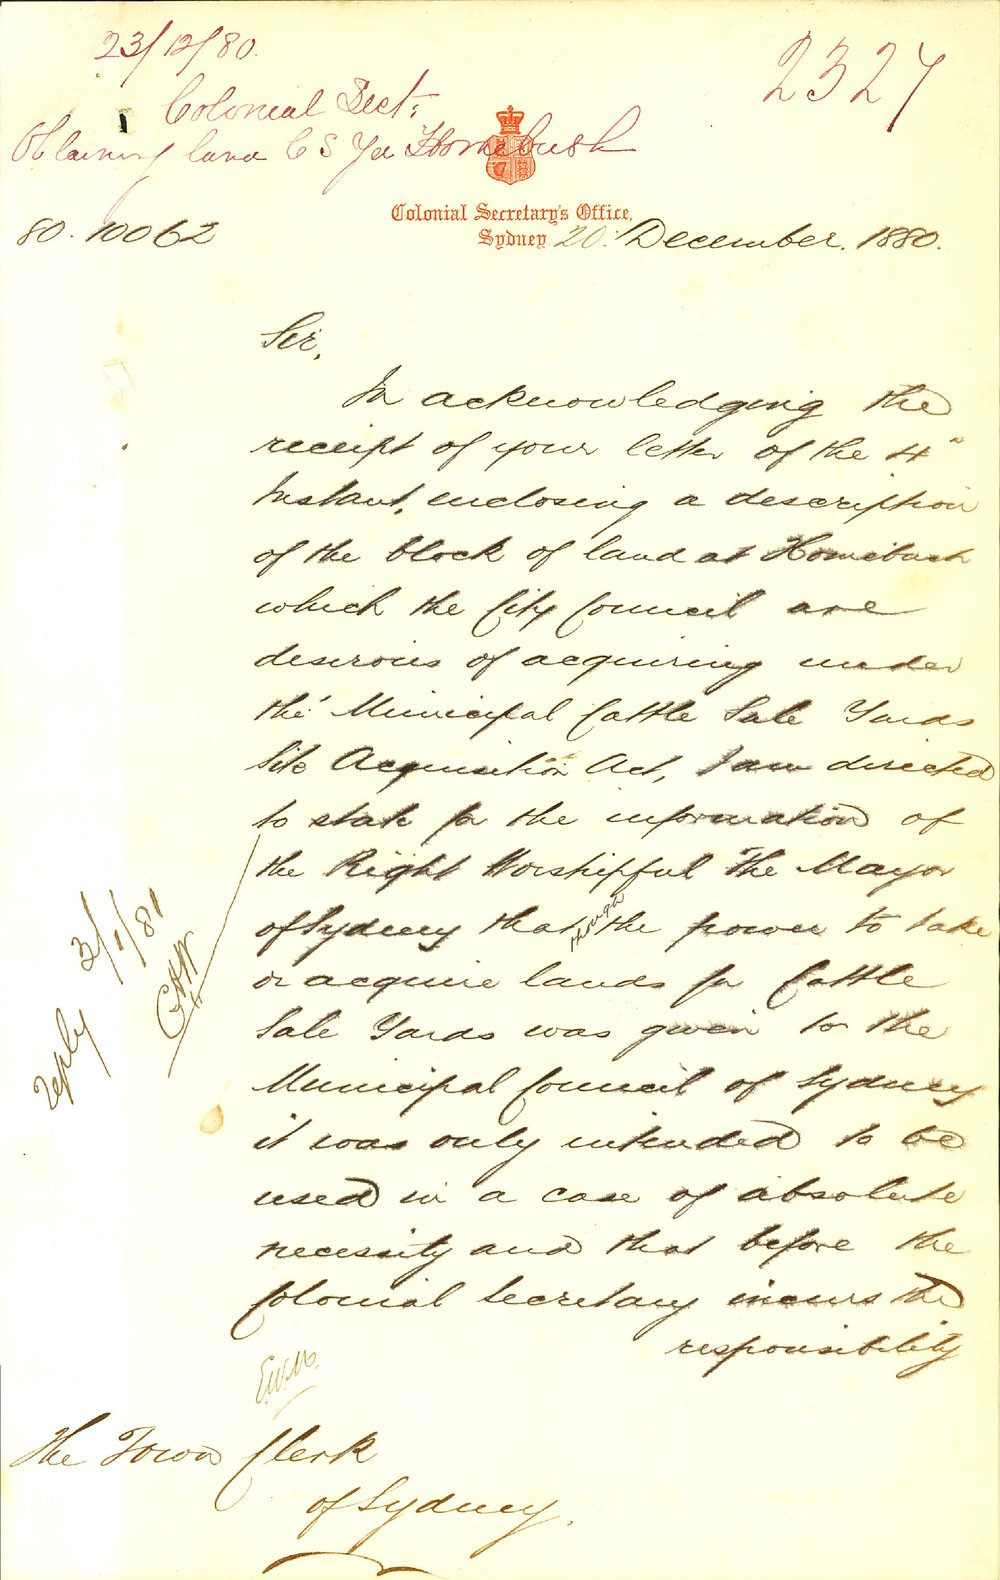 23/12/80.
2327
Colonial Sect:
Obtaining land C S Yd Homebush
Colonial Secretary's Office,
80. 10062
Sydney 20: December. 1880.
Sir,
In acknowledging the
receipt of your letter of the 4"
Instant, enclosing a description
of the block of land at Homebush
which the City Council are
desirous of acquiring under
the Municipal Cattle Sale Yards
Site Acquisition Act, I am directed
to state for the information of
the Right Worshipful The Mayor
of Sydney that though the power to take
or acquire lands for Cattle
Sale Yards was given to the
Municipal Council of Sydney
it was only intended to be
used in a case of absolute
necessity and that before the
Colonial Secretary incurs the
responsibility
reply 3/1/81
E.W.M.
The Town Clerk
of Sydney.